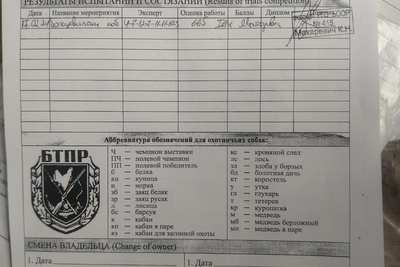 РЕЗУЛЬТАТЫ ИСПЫТАНИЙ И СОСТЯЗАНИЙ (Results of trials competition)
Дата Название мероприятия Эксперт Оценка работы Баллы Диплом
№ 415
Макаревич К.Н.
Аббревиатура обозначений для охотничьих собак:
БТПР
Ч — чемпион выставки
ПЧ — полевой чемпион
ПП — полевой победитель
б — белка
кн — куница
н — норка
зб — заяц беляк
зр — заяц русак
л — лисица
бс — барсук
к — кабан
кп — кабан в паре
кз — кабан для загонной охоты
кс — кровяной след
лс — лось
зл — злоба у борзых
бд — болотная дичь
кт — коростель
у — утка
гл — глухарь
т — тетерев
кр — куропатка
м — медведь
мб — медведь берложный
мп — медведь в паре
СМЕНА ВЛАДЕЛЬЦА (Change of owner)
1. Дата
2. Дата